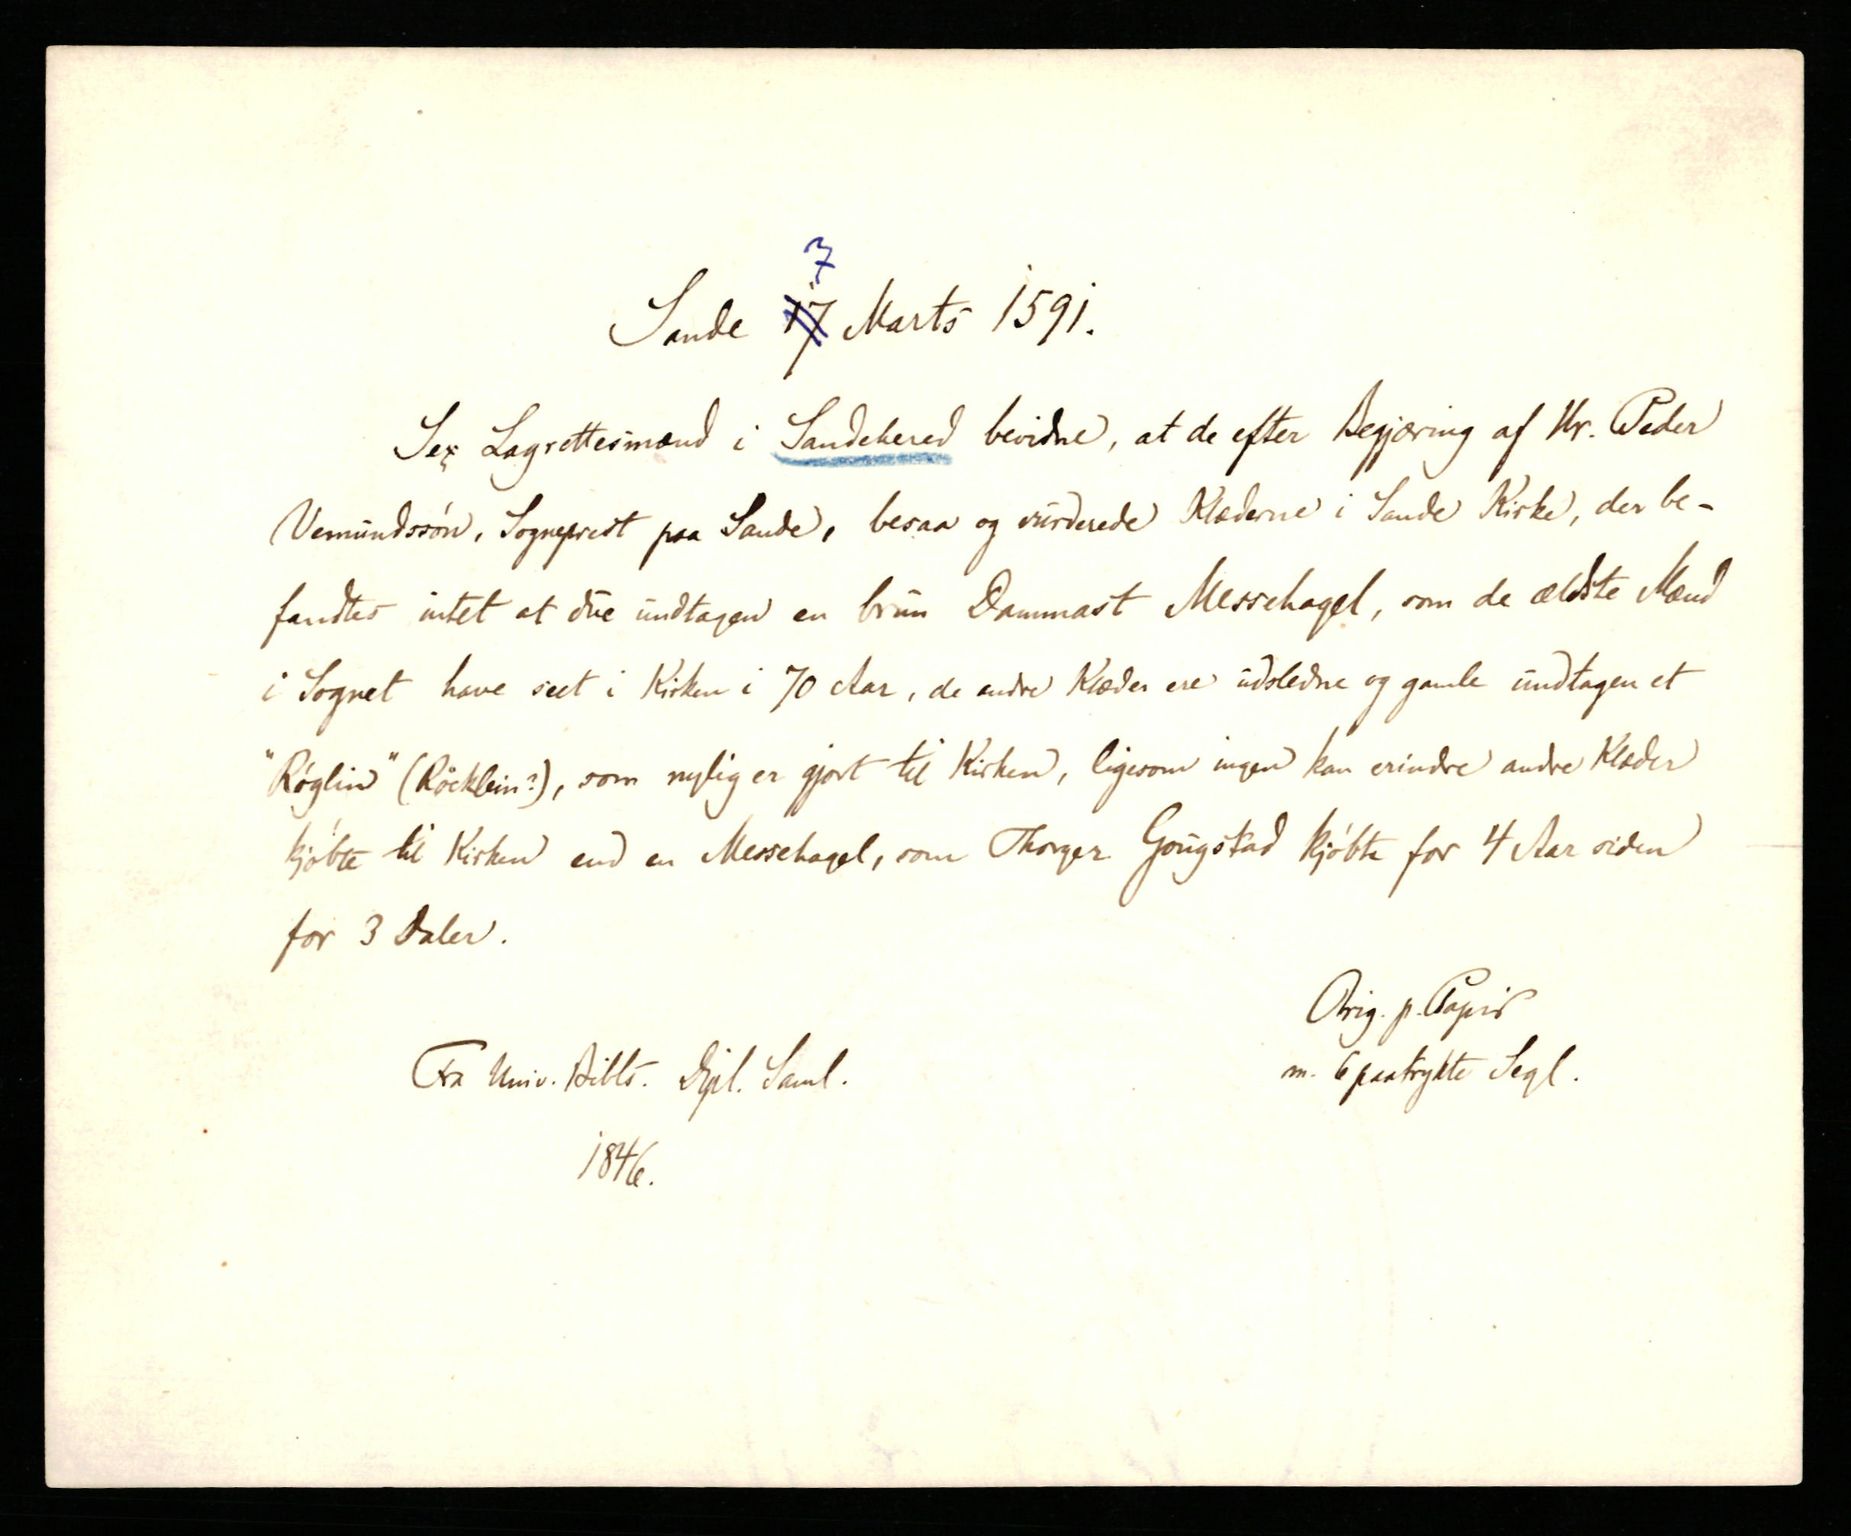 7
Sande 17 Marts 1591.
Sex Lagrettesmænd i Sandehered bevidne, at de efter Begjæring af Hr. Peder
Vemundssøn, Sogneprest paa Sande, besaa og vurderede Klæderne i Sande Kirke, der be-
fandtes intet at due undtagen en brun Dammast Messehagel, som de ældste Mænd
i Sognet have seet i Kirken i 70 Aar, de andre Klæder ere udsledne og gamle undtagen et
"Røglin" (Röcklein?), som nylig er gjort til Kirken, ligesom ingen kan erindre andre Klæder
kjøbte til Kirken end en Messehagel, som Thorger Gougstad kjøbte for 4 Aar siden
for 3 Daler.
Orig. p. Papir
m. 6 paatrykte Segl.
Fra Univ. Bibls. Dipl. Saml.
1846.